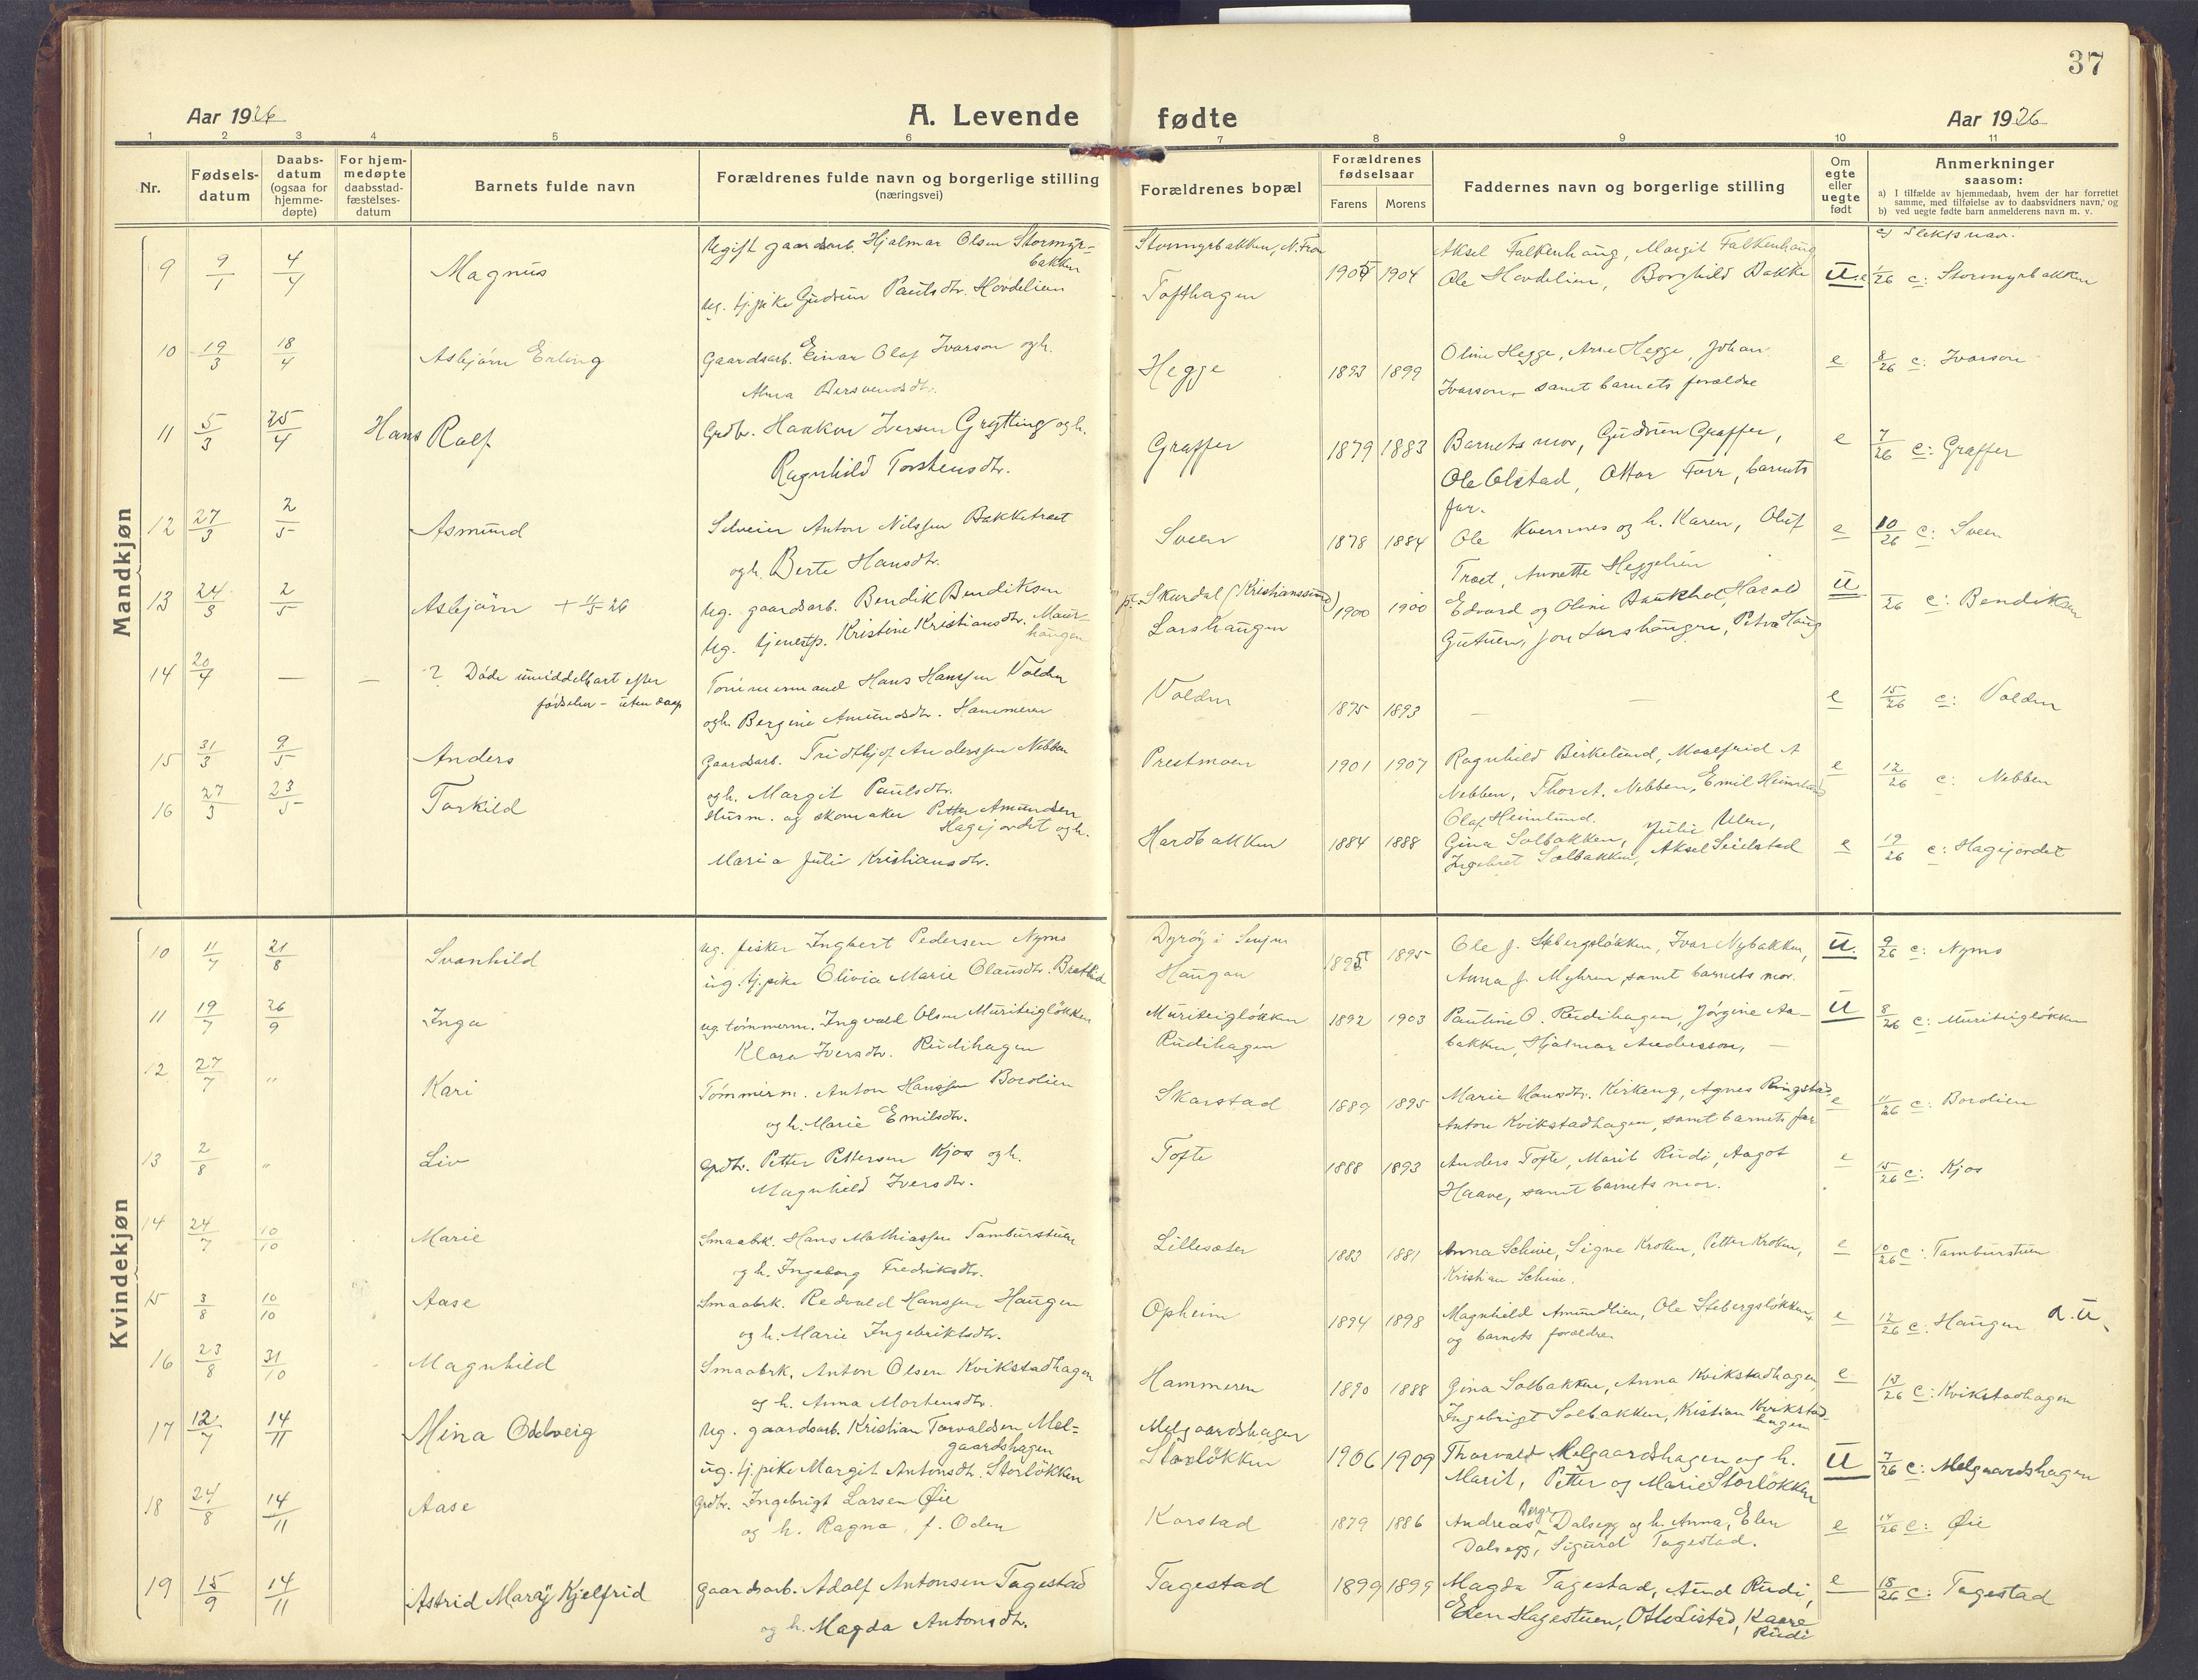 37
Aar 1926
A. Levende fødte
Aar 1926
1 2 3 4 5 6 7 8 9 10 11
Nr.
Fødsels-
datum
Daabs-
datum
(ogsaa for
hjemme-
døpte)
For hjem-
medøpte
daabsstad-
fæstelses-
datum
Barnets fulde navn
Forældrenes fulde navn og borgerlige stilling
(næringsvei)
Forældrenes bopæl
Forældrenes
fødselsaar
Farens Morens
Faddernes navn og borgerlige stilling
Om
egte
eller
uegte
født
Anmerkninger
saasom:
a) I tilfælde av hjemmedaab, hvem der har forrettet
samme, med tilføielse av to daabsvidners navn, og
b) ved uegte fødte barn anmelderens navn m. v.
c) Slektsnavn.
Mandkjøn
9 9/1 4/4 Magnus
Ugift gaardsarb. Hjalmar Olsen Stormyr-
bakken
ug. tj.pike Gudrun Paulsdtr. Hovdelien
Stormyrbakken, N. Fron
Tofthagen
1905 1904
Aksel Falkenhaug, Margit Falkenhaug
Ole Hovdelien, Borghild Bakke
U. 1/26 c: Stormyrbakken
10 19/3 18/4 Asbjørn Erling
Gaardsarb. Einar Olaf Ivarson og h.
Alma Bersvendsdtr.
Hegge 1893 1899
Oline Hegge, Arne Hegge, Johan
Ivarson, samt barnets forældre
e 8/26 c: Ivarson
11 5/3 25/4 Hans Rolf
Grdbr. Haakon Iversen Grytting og h.
Ragnhild Torstensdtr.
Graffer 1879 1883
Barnets mor, Gudrun Graffer,
Ole Olstad, Ottar Forr, barnets
far.
e 7/26 c: Graffer
12 27/3 2/5 Asmund
Selveier Anton Nilssen Bakketræet
og h. Berte Hansdtr.
Sveen 1878 1884
Ole Kvernnes og h. Karen, Oluf
Træet, Annette Heggelien
e 10/26 c: Sveen
13 24/3 2/5 Asbjørn + 11/5 26
Ug. gaardsarb. Bendik Bendiksen
Ug. tjenestp. Kristine Kristiansdtr. Maur-
haugen
p.t. Skurdal (Kristianssund)
Larshaugen
1900 1900
Edvard og Oline Baukhol, Harald
Gutuen, Jon Larshaugen, Petra Haug
U /26 c: Bendiksen
14 20/4 — — ? Døde umiddelbart efter
fødselen - uten daap
Tømmermand Hans Hanssen Volden
og h. Bergine Amundsdtr. Hammeren
Volden 1875 1893 — —
e 15/26 c: Volden
15 31/3 9/5 Anders
Gaardsarb. Fridthjof Anderssen Nebben
og h. Margit Paulsdtr.
Prestmoen 1901 1907
Ragnhild Birkelund, Maalfrid A
Nebben, Thor A. Nebben, Emil Heimlund
Olaf Heimlund.
e 12/26 c: Nebben
16 27/3 23/5 Torkild
Husm. og skomaker Petter Amundsen
Hagejordet og h.
Maria Julie Kristiansdtr.
Hardbakken 1884 1888
Gina Solbakken, Julie Ulen,
Ingebret Solbakken, Aksel Seielstad
e 19/26 c: Hagejordet
Kvindekjøn
10 11/7 21/8 Svanhild
ug. fisker Ingbert Pedersen Nymo
ug. tj.pike Olivia Marie Olausdtr. Brætlid
Dyrøy i Senjen
Haugan
1895 1895
Ole J. Stebergsløkken, Ivar Nybakken,
Anna J. Myhren, samt barnets mor.
U. 9/26 c: Nymo
11 19/7 26/9 Inga
ug tømmerm. Ingvald Olsen Muriteigløkken
Klara Iversdtr. Rudihagen
Muriteigløkken
Rudihagen
1892 1903
Pauline O. Rudihagen, Jørgine Aa-
bakken, Hjalmar Andersson, —
U 8/26 c: Muriteigløkken
12 27/7 " Kari
Tømmerm. Anton Hanssen Bordlien
og h. Marie Emilsdtr.
Skarstad 1889 1895
Marie Hansdtr. Kirkeng, Agnes Ringstad,
Anton Kvikstadhagen, samt barnets far
e 11/26 c: Bordlien
13 2/8 " Liv
Grdbr. Petter Pettersen Kjos og h.
Magnhild Iversdtr.
Tofte 1888 1893
Anders Tofte, Marit Rudi, Aagot
Haave, samt barnets mor.
e 15/26 c: Kjos
14 24/7 10/10 Marie
Smaabrk. Hans Mathiassen Tamburstuen
og h. Ingeborg Fredriksdtr.
Lillesæter 1883 1881
Anna Schiue, Signe Kroken, Petter Kroken,
Kristian Schiue.
e 10/26 c: Tamburstuen
15 3/8 10/10 Aase
Smaabrk. Redvald Hanssen Haugen
og h. Marie Ingebriktsdtr.
Opheim 1894 1898
Magnhild Amundlien, Ole Stebergsløkken,
og barnets forældre
e 12/26 c: Haugen d. U.
16 23/8 31/10 Magnhild
Smaabrk. Anton Olsen Kvikstadhagen
og h. Anna Mortensdtr.
Hammeren 1890 1888
Gina Solbakken, Anna Kvikstadhagen
Ingebrigt Solbakken, Kristian Kvikstad-
hagen
e 13/26 c: Kvikstadhagen
17 12/7 14/11 Mina Oddveig
Ug. gaardsarb. Kristian Torvaldsen Mel-
gaardshagen
ug. tj.pike Margit Antonsdtr. Storløkken
Melgaardshagen
Storløkken
1906 1909
Thorvald Melgaardshagen og h.
Marit, Petter og Marie Storløkken
U 7/26 c: Melgaardshagen
18 24/8 14/11 Aase
Grdbr. Ingebrigt Larsen Øie
og h. Ragna, f. Oden
Korstad 1879 1886
Andreas Berge Dalsegg og h. Anna, Elen
Dalsegg, Sigurd Tagestad.
e 14/26 c: Øie
19 15/9 14/11 Astrid Mary Kjelfrid
Gaardsarb. Adolf Antonsen Tagestad
og h. Magda Antonsdtr.
Tagestad 1899 1899
Magda Tagestad, Amd Rudi,
Elen Hagestuen, Otto Listad, Kaare
Rudi
e 18/26 c: Tagestad